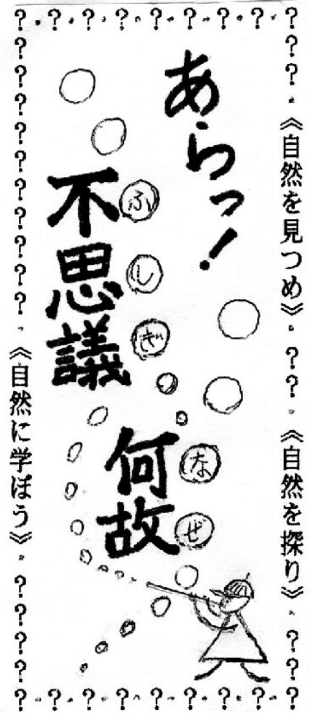 ?・?・?・?・?・?・?・?・?
??・《自然を見つめ》・??・《自然を探り》・???
あらっ!
不思議
ふしぎ
何故
なぜ
??????????・《自然に学ぼう》・?????
?・?・?・?・?・?・?・?・?